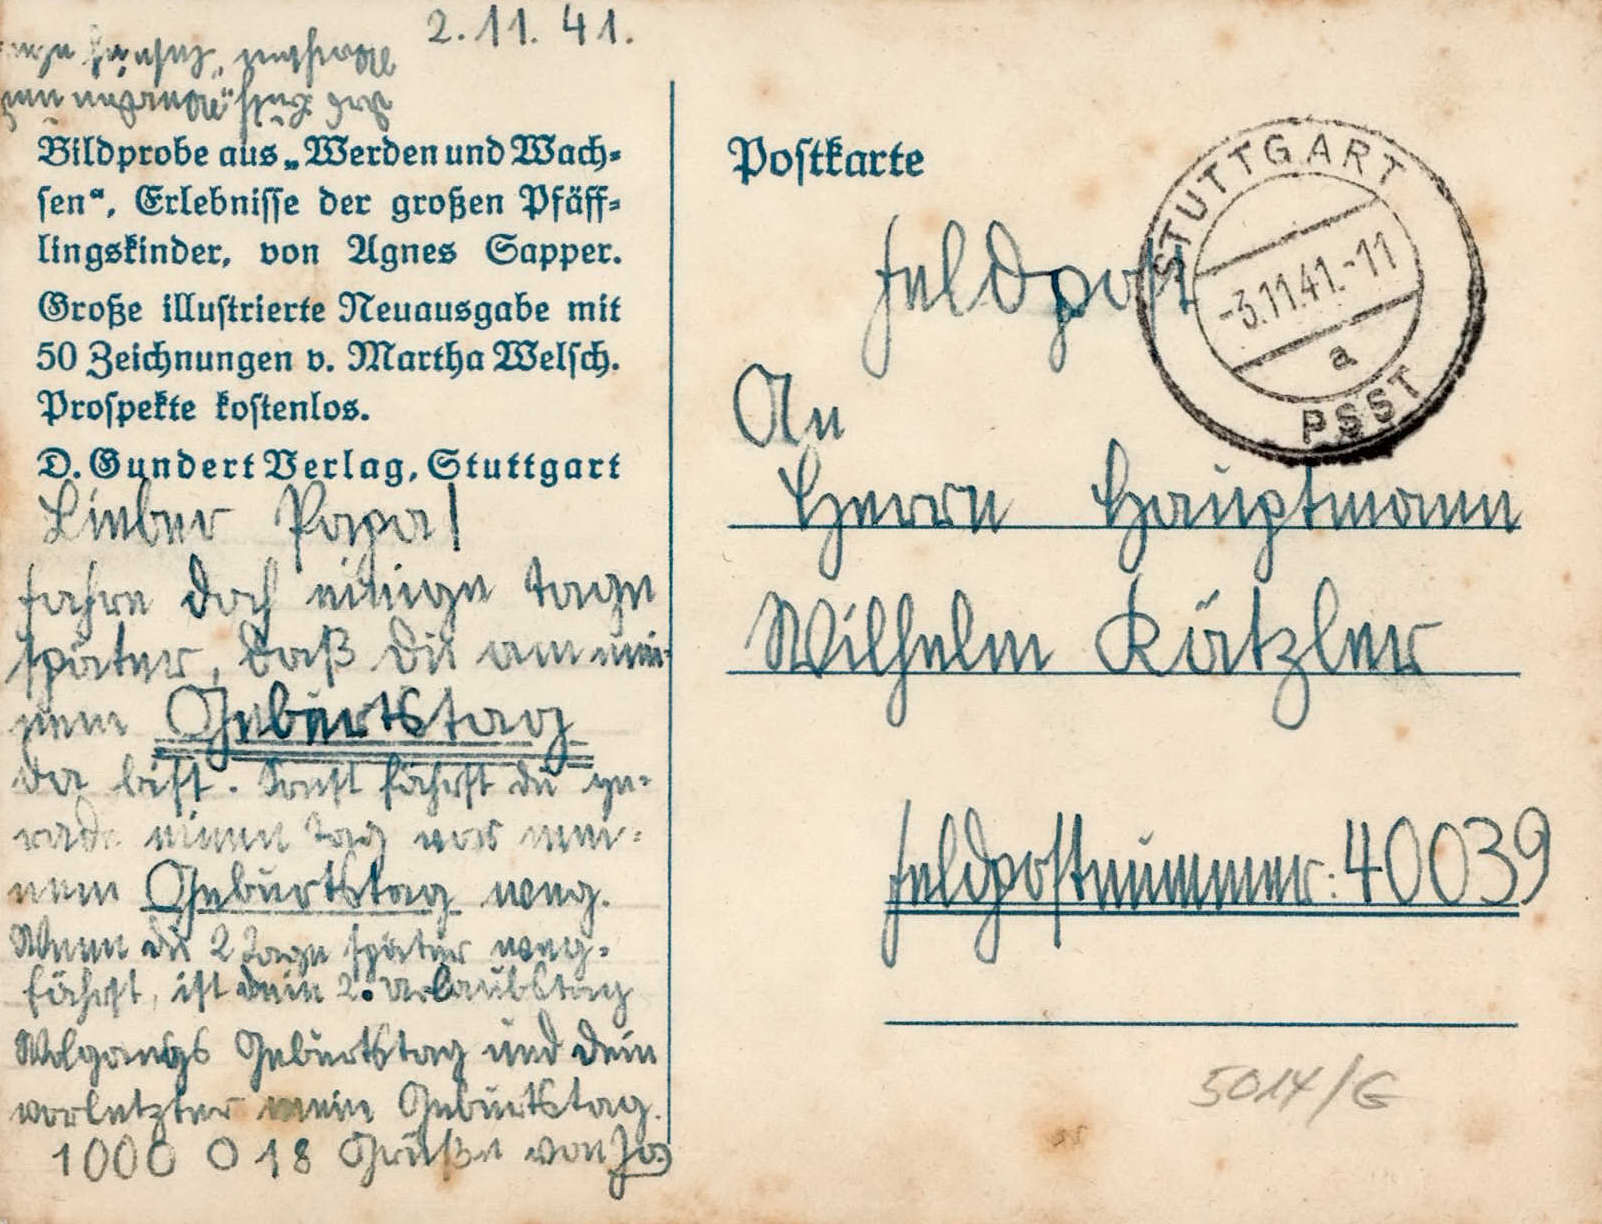 2.11.41.
Bildprobe aus „Werden und Wach-
sen“, Erlebnisse der großen Pfäff-
lingskinder, von Agnes Sapper.
Große illustrierte Neuausgabe mit
50 Zeichnungen v. Martha Welsch.
Prospekte kostenlos.
D. Gundert Verlag, Stuttgart
Lieber Papa!
fahre doch einige Tage
später, daß du an mei-
nem Geburtstag
da bist. Sonst fährst du ge-
rade einen Tag vor mei-
nem Geburtstag weg.
Wenn du 2 Tage später weg-
fährst, ist dein 2. Urlaubstag
Wolgangs Geburtstag und dein
vorletzter mein Geburtstag.
1000 0 18 Grüße von
Postkarte
STUTTGART
-3.11.41.-11
a
PSST
Feldpost
An
Herrn Hauptmann
Wilhelm Kätzler
Feldpostnummer: 40039
5014/G